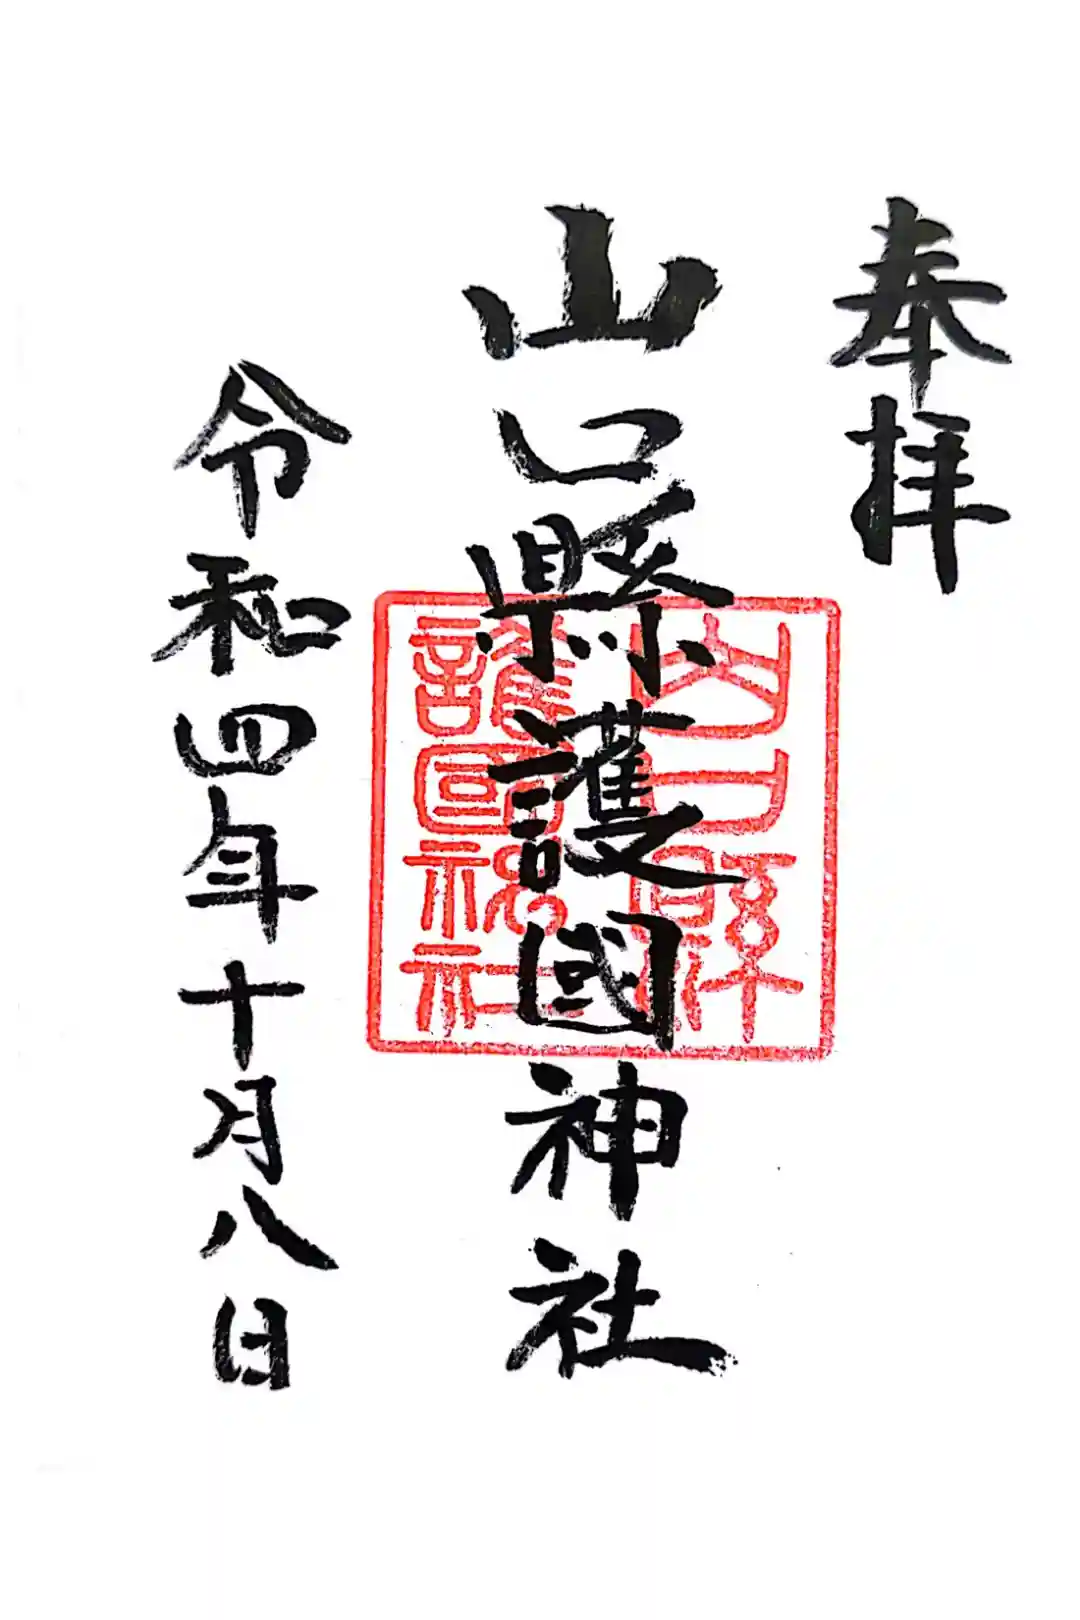 奉拝
山口縣護國神社
山口縣
護國神社
令和四年十月八日